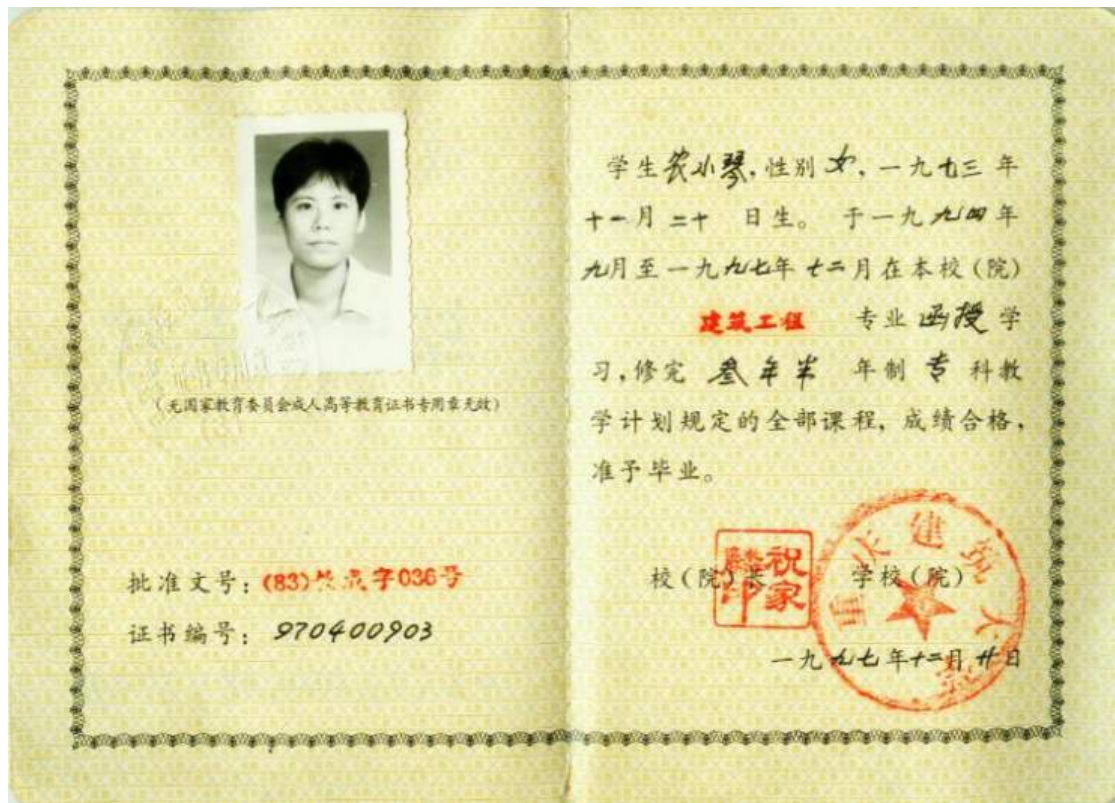 (无国家教育委员会成人高等教育证书专用章无效)
批准文号: (83)教成字036号
证书编号: 970400903
学生农小琴,性别女,一九七三年
十一月二十 日生。 于一九九四年
九月至一九九七年十二月在本校(院)
建筑工程 专业函授学
习,修完 叁年半 年制专科教
学计划规定的全部课程,成绩合格,
准予毕业。
校(院)长 学校(院)
祝家麟印
重庆建筑大学
一九九七年十二月廿日